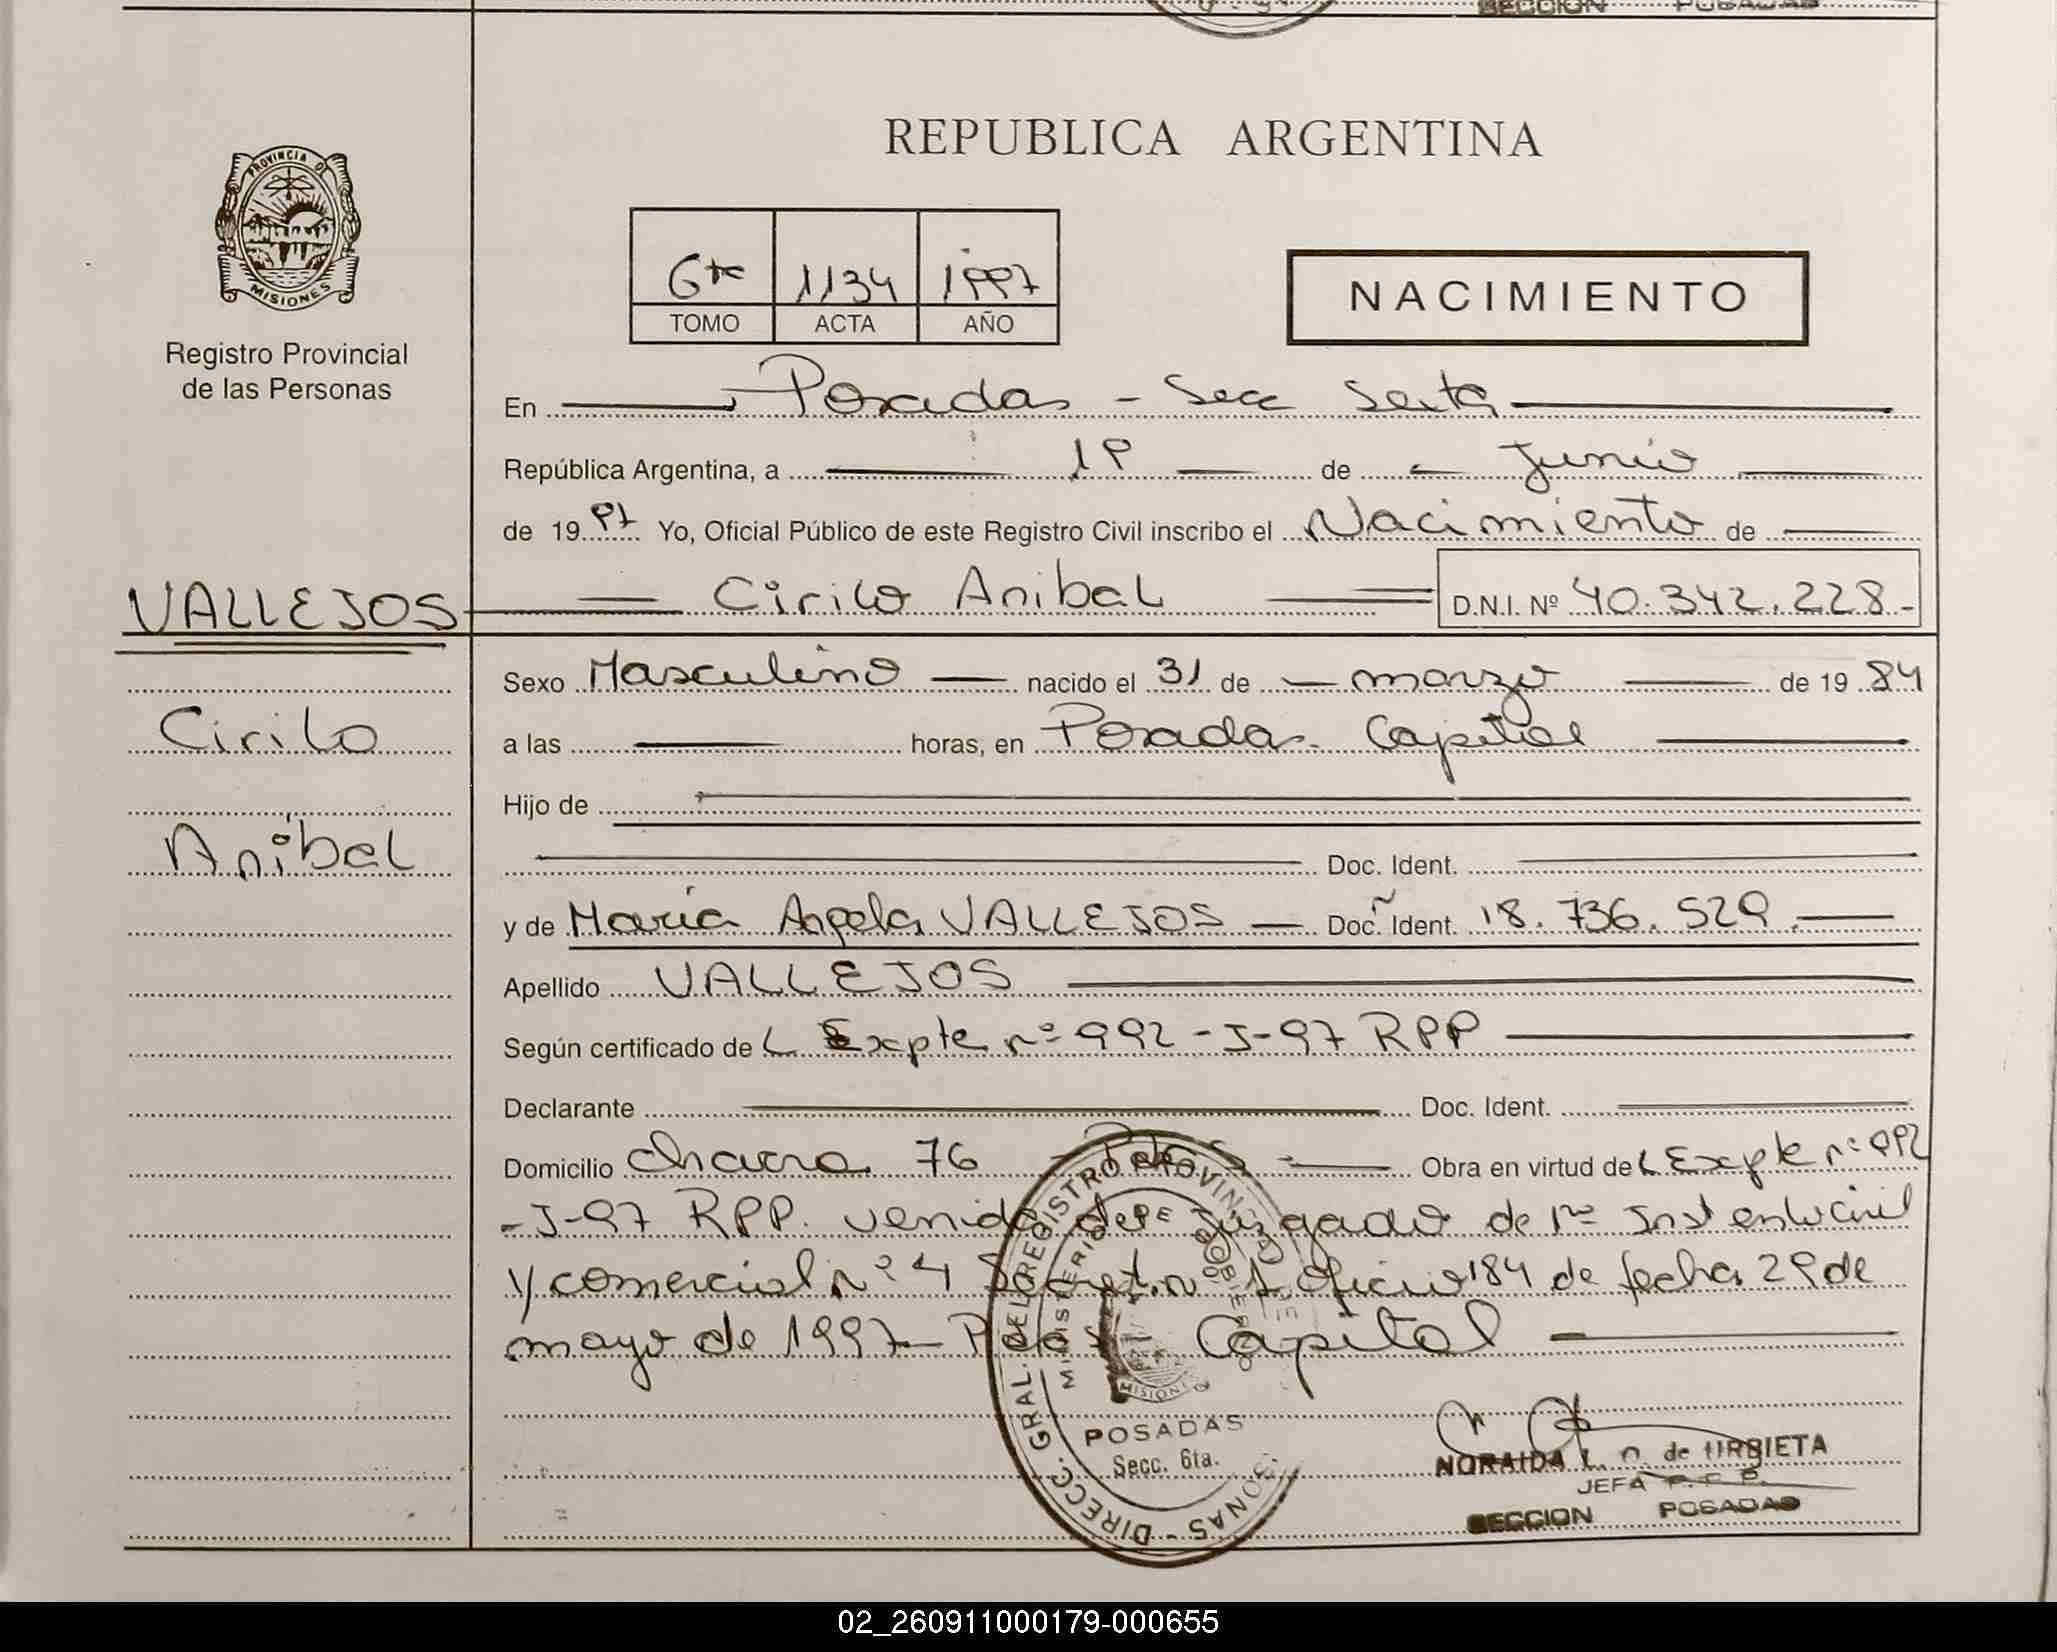 SECCION POSADAS
REPUBLICA ARGENTINA
PROVINCIA DE
MISIONES
Registro Provincial
de las Personas
6ta 1134 1997
TOMO ACTA AÑO
NACIMIENTO
En Posadas - Secc Sexta
República Argentina, a 19 de Junio
de 1997 Yo, Oficial Público de este Registro Civil inscribo el Nacimiento de
VALLEJOS Cirilo Anibal D.N.I. Nº 40.342.228.-
Cirilo
Anibal
Sexo Masculino nacido el 31 de marzo de 1984
a las horas, en Posadas. Capital
Hijo de
Doc. Ident.
y de María Angela VALLEJOS Doc. Ident. 18.736.529.
Apellido VALLEJOS
Según certificado de L Expte nº 992 - J-97 RPP
Declarante Doc. Ident.
Domicilio chacra 76 - Pdas Obra en virtud de L Expte nº 992
- J-97 RPP. venido del Juzgado de 1ra Inst en lo Civil
y comercial nº 4 Secret. n 1 Oficio 184 de fecha 29 de
mayo de 1997 - Pdas Capital
DIRECC. GRAL. DEL REGISTRO PROVINC
MINISTERIO DE GOBIERNO
MISIONES
POSADAS
Secc. 6ta.
NORAIDA L. de URBIETA
JEFA
SECCION POSADAS
02_260911000179-000655